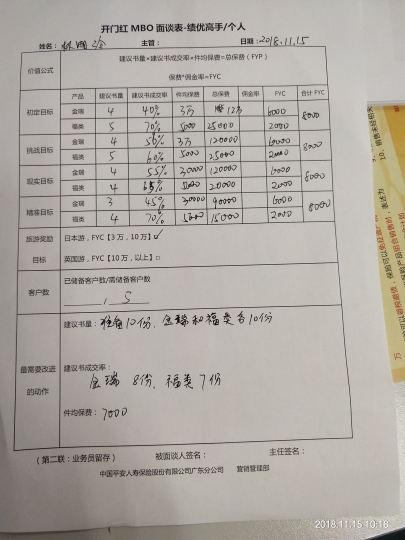 开门红 MBO 面谈表-绩优高手/个人
姓名： 主管： 日期：2018.11.15
价值公式 建议书量*建议书成交率*件均保费=总保费（FYP）
保费*佣金率=FYC
产品 建议书量 建议书成交率 件均保费 总保费 佣金率 FYC 合计 FYC
初定目标 金瑞 4 40% 3万 12万 6000 8000
福类 5 70% 5000 25000 2000
挑战目标 金瑞 4 50% 3万 120000 6000 8000
福类 5 60% 5000 25000 2000
现实目标 金瑞 4 55% 30000 120000 6000 8000
福类 4 65% 5000 20000 2000
精准目标 金瑞 3 45% 30000 90000 6000 8000
福类 4 70% 5000 15000 2000
旅游奖励 日本游，FYC【3 万，10 万】✓
目标 英国游，FYC【10 万，以上】□
客户数 已储备客户数/需储备客户数
5
最需要改进的动作
建议书量：准备10份，金瑞和福类各10份
建议书成交率：
金瑞 8份，福类 7份
件均保费：7000
（第二联：业务员留存） 被面谈人签名： 主任签名：
中国平安人寿保险股份有限公司广东分公司 营销管理部
2018.11.15 10:18